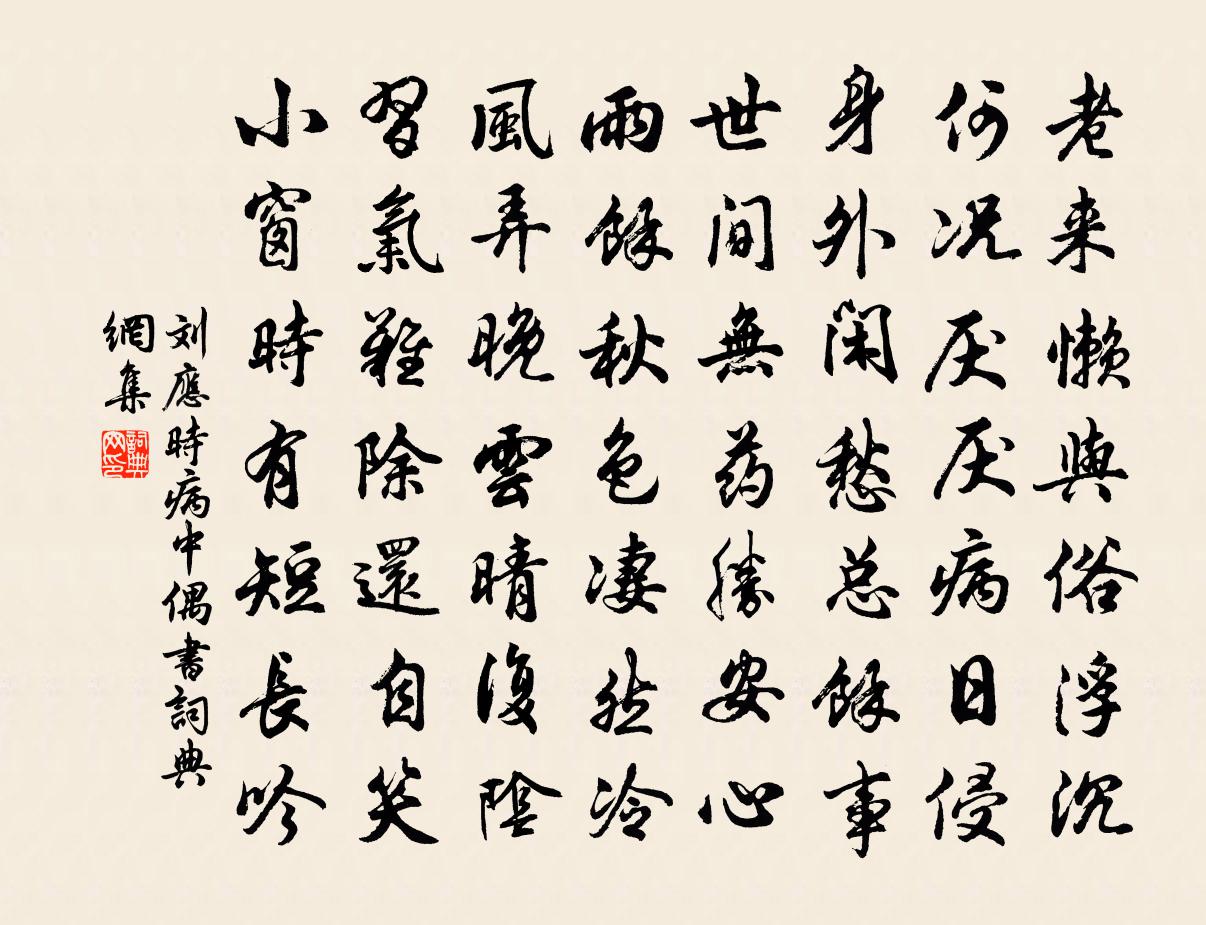 老来懒與俗浮沉
何况厌厌病日侵
身外闲愁总餘事
世间無药勝安心
雨餘秋色凄然冷
風弄晚雲晴復陰
習氣難除還自笑
小窗時有短長吟
刘應時病中偶書詞典
網集
詞典
网印